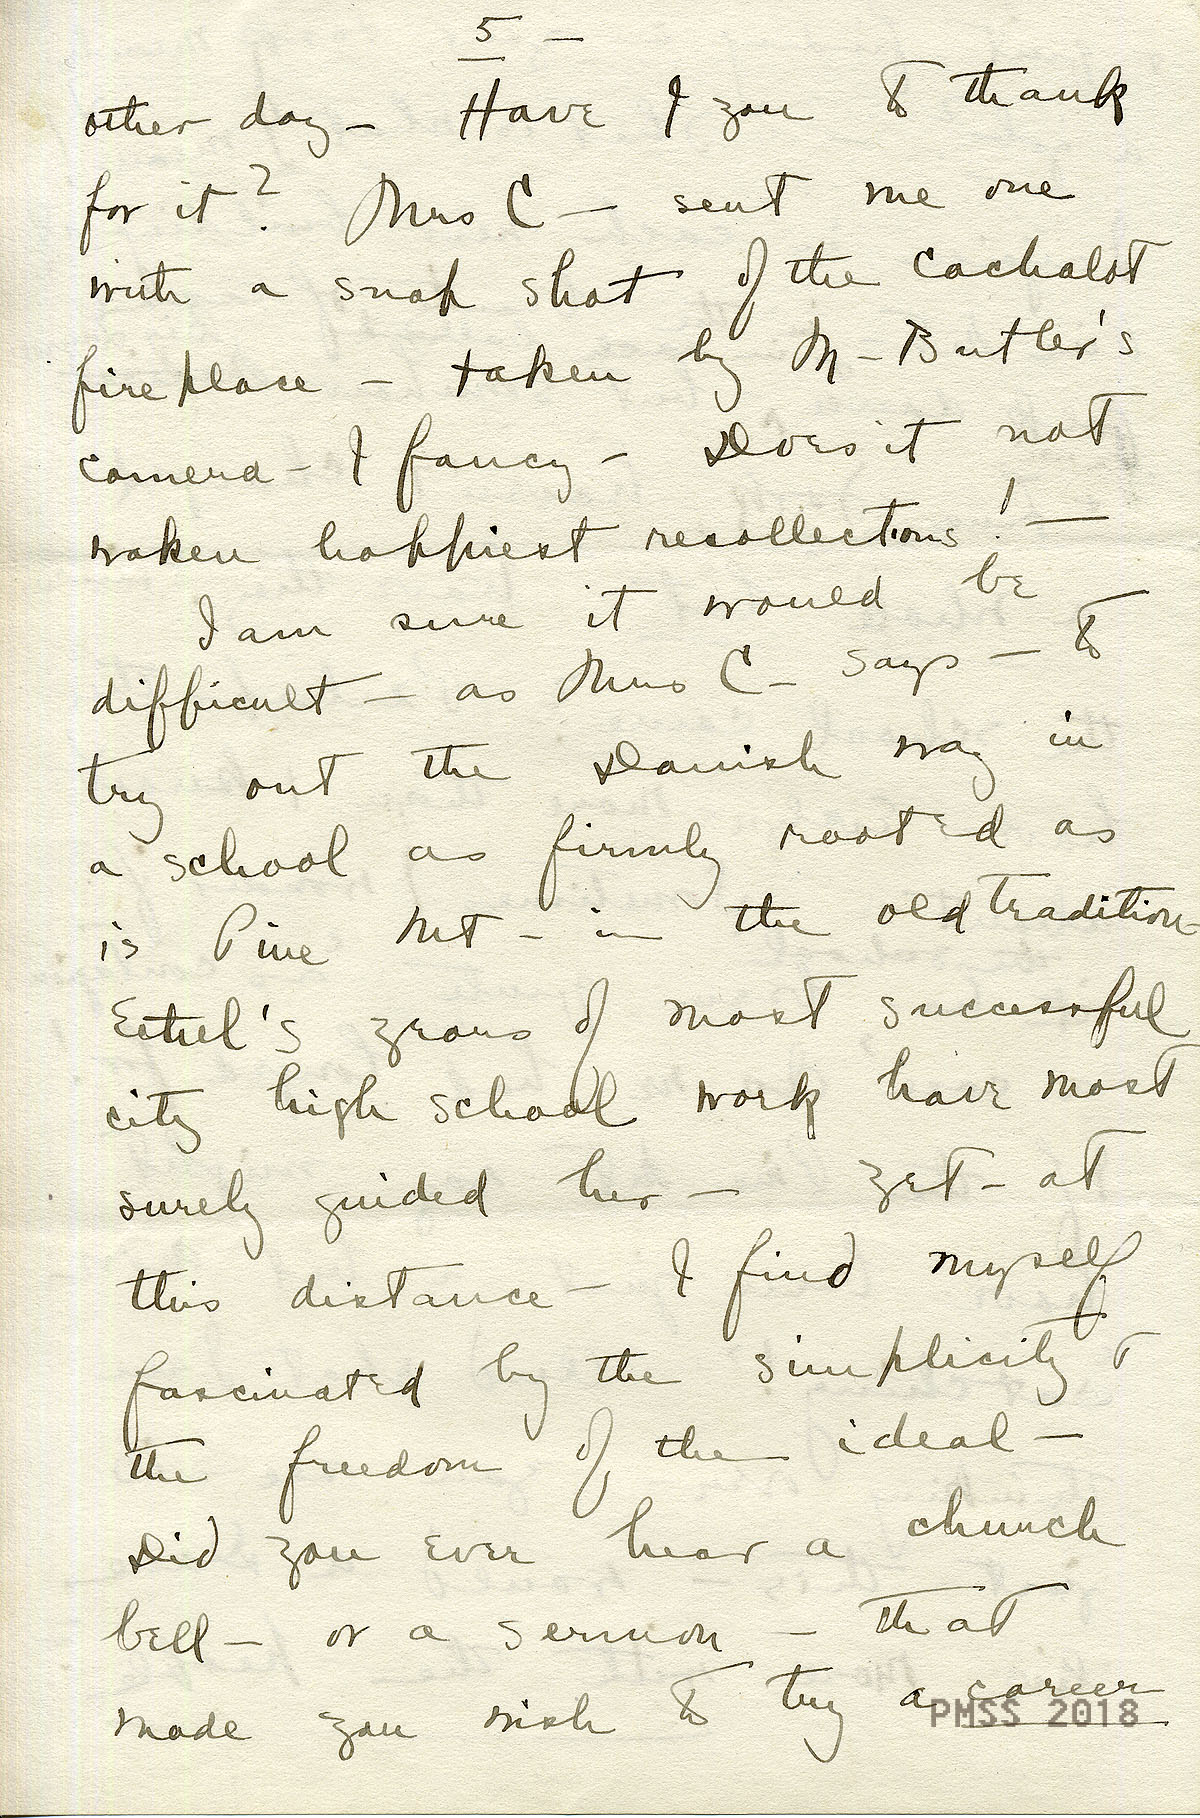 5 —
other day — Have I you to thank
for it? Mrs C — sent me one
with a snap shot of the Cachalot
fireplace — taken by M — Butler's
camera — I fancy — Does it not
waken happiest recollections! —
I am sure it would be
difficult — as Mrs C — says — to
try out the Danish way in
a school as firmly rooted as
is Pine Mt — in the old tradition —
Ethel's years of most successful
city high school work have most
surely guided her — yet — at
this distance — I find myself
fascinated by the simplicity &
the freedom of the ideal —
Did you ever hear a church
bell — or a sermon — that
made you wish to try a career
PMSS 2018